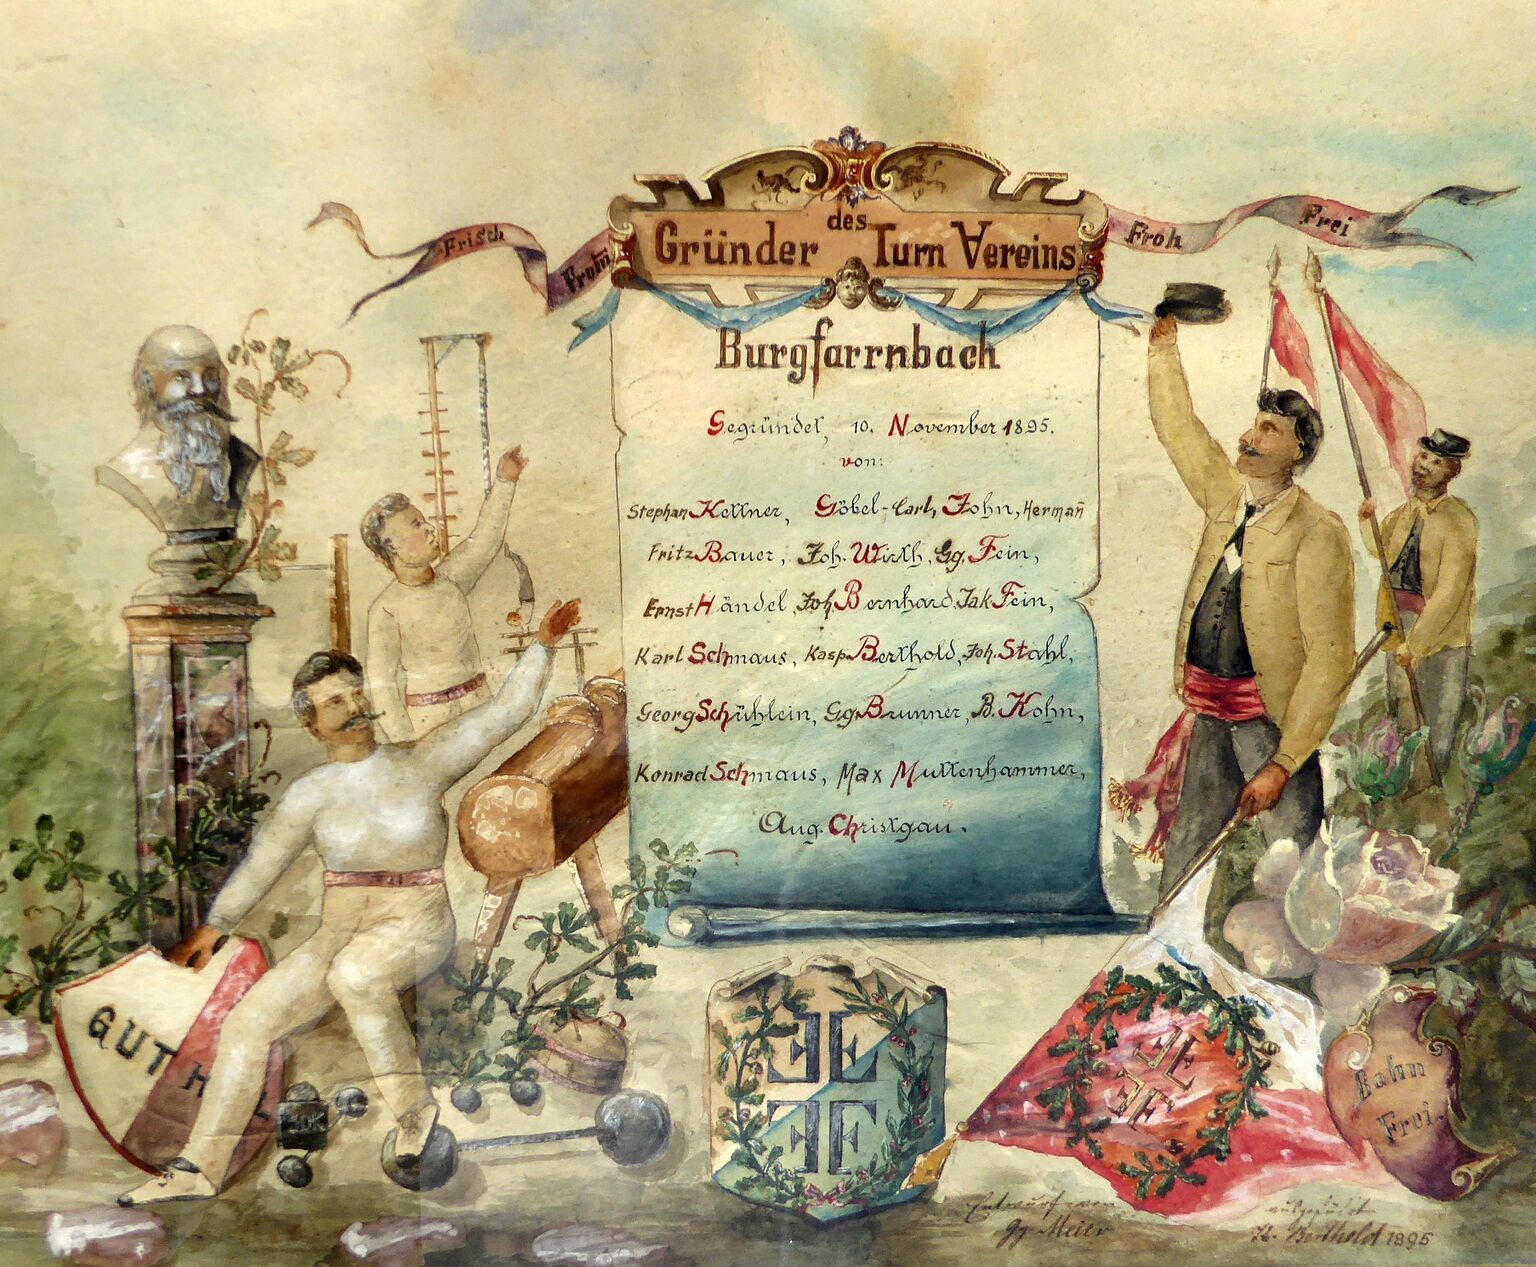 Frisch
Fromm̄
Froh
Frei
Gründer des Turn Vereins
Burgfarrnbach
Gegründet, 10. November 1895.
von:
Stephan Kellner, Göbel-Carl, John, Hermañ
Fritz Bauer, Joh. Wirth, Gg. Fein,
Ernst Händel, Joh Bernhard, Jak Fein,
Karl Schmaus, Kasp. Berthold, Joh. Stahl,
Georg Schühlein, Gg. Brunner, B. Kohn,
Konrad Schmaus, Max Muttenhammer,
Aug. Christgau.
GUT H
FF
FF
FF
FF
Bahn
Frei.
Entwurf von
Gg. Meier
ausgeführt
K. Berthold 1895